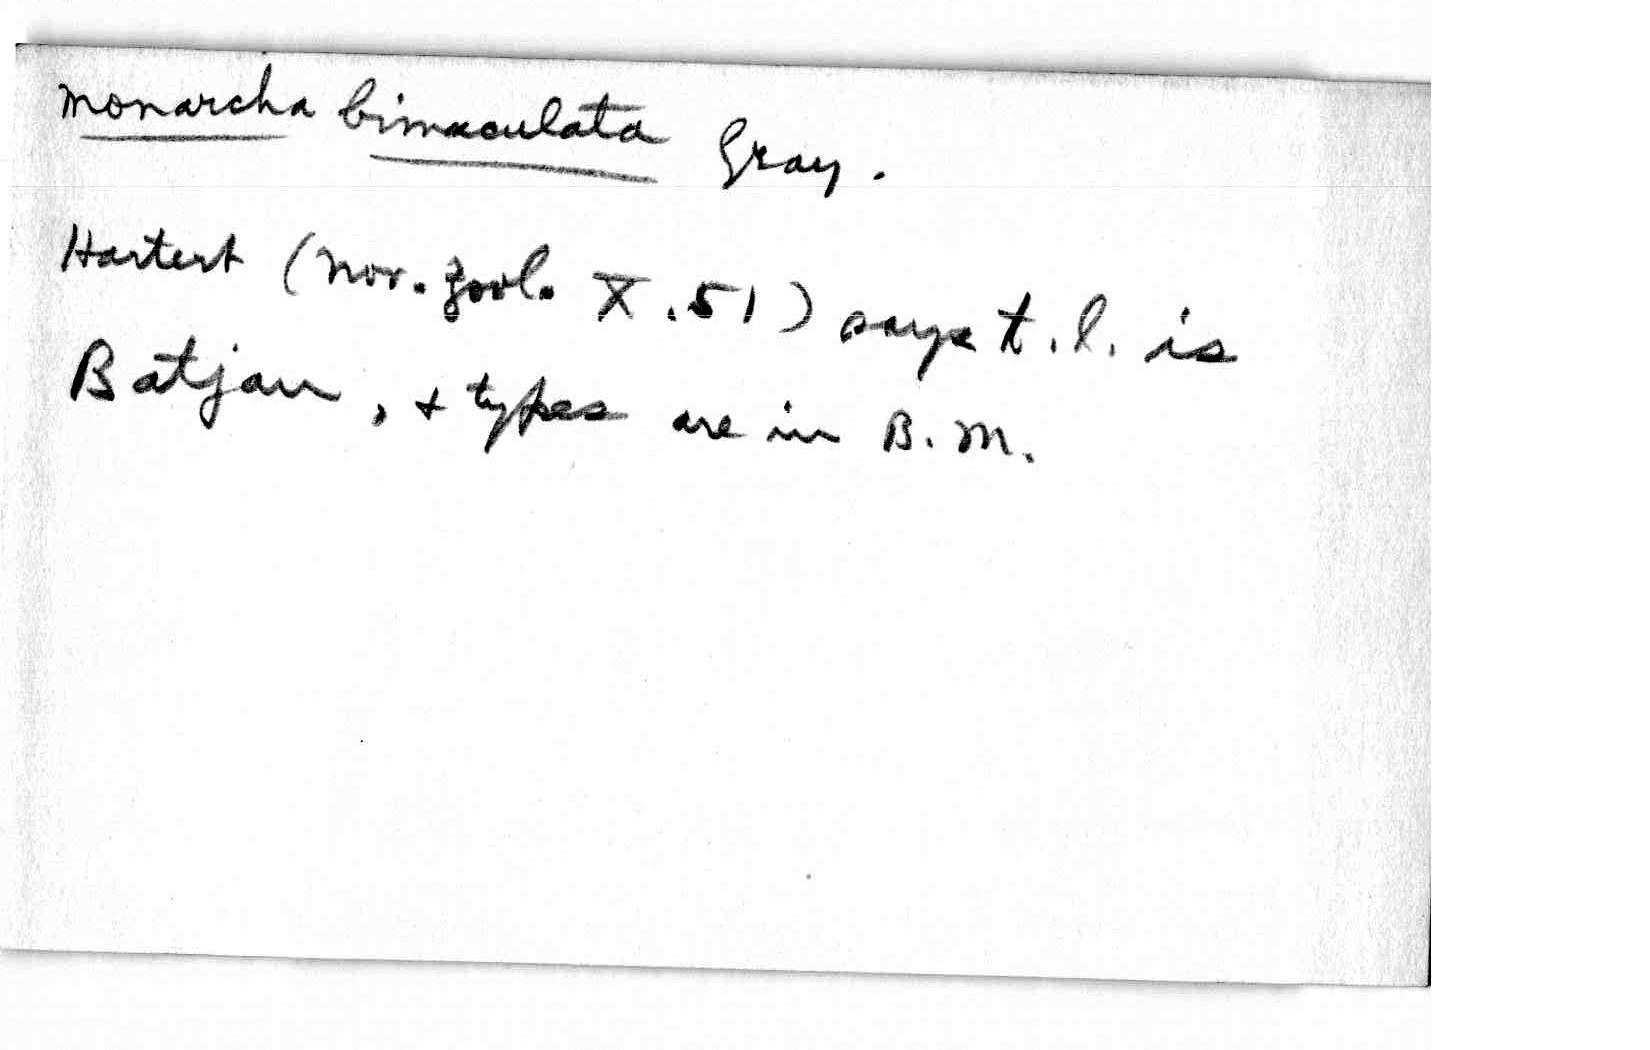 Monarcha bimaculata Gray.
Hartert (Nov. Zool. X. 51) says t.l. is
Batjan, + types are in B.M.